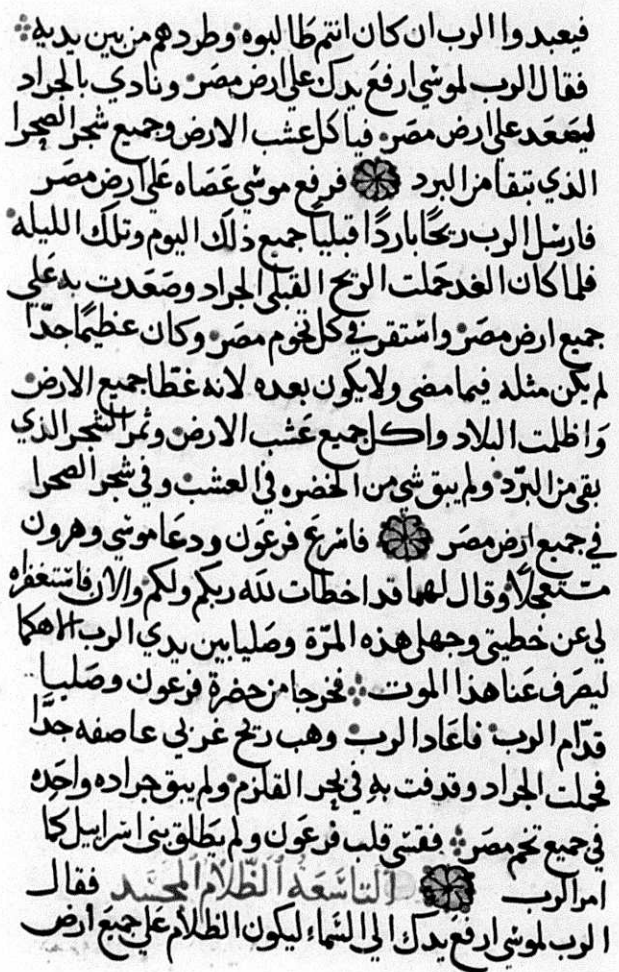 فيعبدوا الرب ان كان انتم طالبوه وطردهم من بين يديه
فقال الرب لموسي ارفع يدك علي ارض مصر ونادي بالجراد
ليصعد علي ارض مصر فياكل عشب الارض وجميع شجر الصحرا
الذي تبقا من البرد فرفع موسي عصاه علي ارض مصر
فارسل الرب ريحًا باردًا قبليا جميع ذلك اليوم وتلك الليله
فلما كان الغد حملت الريح القبلي الجراد وصعدت به علي
جميع ارض مصر واستقر في كل تخوم مصر وكان عظيمًا جدًا
لم يكن مثله فيما مضي ولا يكون بعده لانه غطا جميع الارض
واظلمت البلاد واكل جميع عشب الارض وثمر الشجر الذي
بقي من البرد ولم يبق شي من الخضره في العشب وفي شجر الصحرا
في جميع ارض مصر فاسرع فرعون ودعا موسي وهرون
مستعجلًا وقال لهما قد اخطات لله ربكم ولكم والان فاستغفراه
لي عن خطيتي وجهلي هذه المرة وصليا بين يدي الرب الاهكما
ليصرف عنا هذا الموت فخرجا من حضرة فرعون وصليا
قدام الرب فاعاد الرب وهب ريح غربي عاصفه جدًا
فحملت الجراد وقدفت به في بحر القلزم ولم يبق جراده واحده
في جميع تخم مصر فقسي قلب فرعون ولم يطلق بني اسراييل كما
امر الرب التاسعة الظلام المجسد فقال
الرب لموسي ارفع يدك الي السماء ليكون الظلام علي جميع ارض